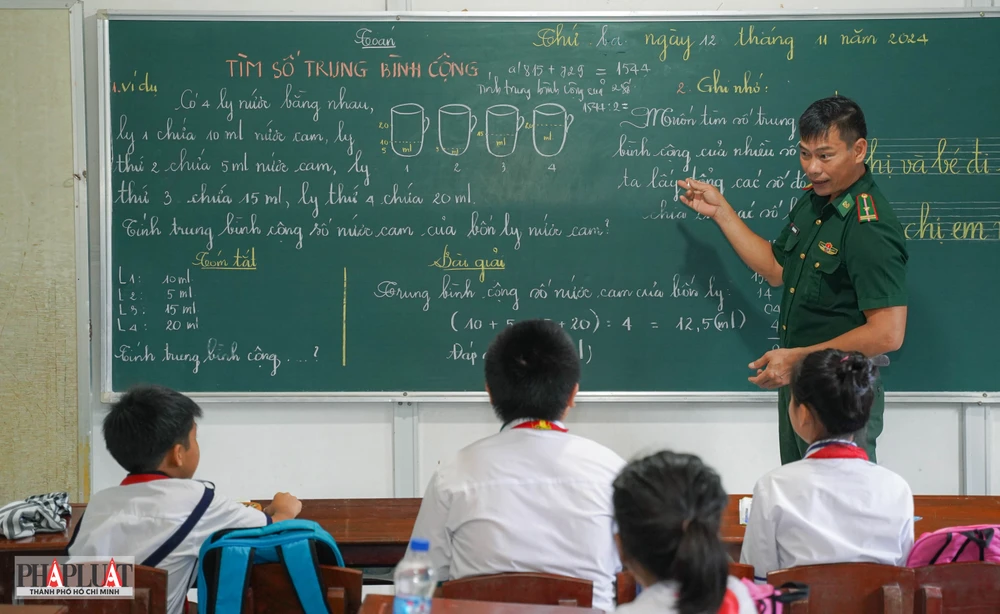 Toán
Thứ ba ngày 12 tháng 11 năm 2024
TÌM SỐ TRUNG BÌNH CỘNG
a/ 815 + 729 = 1544
Tính trung bình cộng của 2 số
1544 : 2 =
1. Ví dụ
Có 4 ly nước bằng nhau,
ly 1 chứa 10 ml nước cam, ly
thứ 2 chứa 5 ml nước cam, ly
thứ 3 chứa 15 ml, ly thứ 4 chứa 20 ml.
Tính trung bình cộng số nước cam của bốn ly nước cam?
20
10
5
ml
ml
ml
20
ml
1 2 3 4
2. Ghi nhớ:
Muốn tìm số trung
bình cộng của nhiều số
ta lấy tổng các số đó
chia các số
Tóm tắt
L1: 10 ml
L2: 5 ml
L3: 15 ml
L4: 20 ml
Tính trung bình cộng ....?
Bài giải
Trung bình cộng số nước cam của bốn ly.
(10 + 5 + 20) : 4 = 12,5 (ml)
Đáp
14
04
hị và bé đi
chị em
PHÁP LUẬT
THÀNH PHỐ HỒ CHÍ MINH